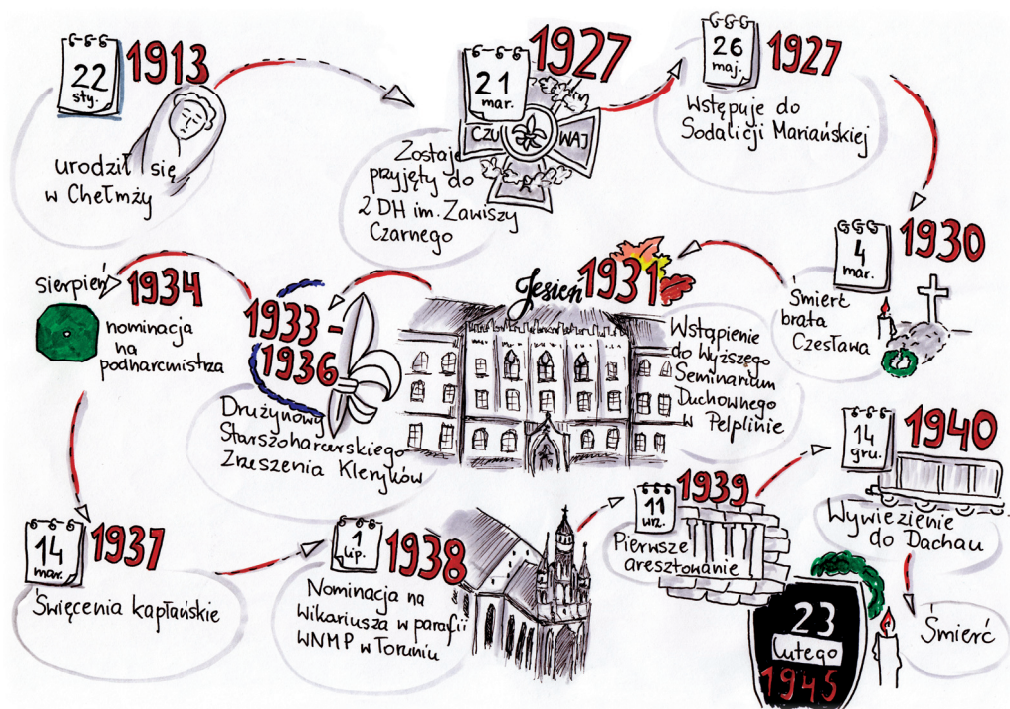 22
sty.
1913
urodził się
w Chełmży
21
mar.
1927
CZU WAJ
Zostaje
przyjęty do
2 DH im. Zawiszy
Czarnego
26
maj.
1927
Wstępuje do
Sodalicji Mariańskiej
4
mar.
1930
Śmierć
brata
Czesława
Jesień 1931
Wstąpienie
do Wyższego
Seminarium
Duchownego
w Pelplinie
1933-
1936
Drużynowy
Starszoharcerskiego
Zrzeszenia Kleryków
sierpień
1934
nominacja
na
podharcmistrza
14
mar.
1937
Święcenia kapłańskie
1
lip.
1938
Nominacja na
Wikariusza w parafii
WNMP w Toruniu
11
wrz.
1939
Pierwsze
aresztowanie
14
gru.
1940
Wywiezienie
do Dachau
23
Lutego
1945
Śmierć